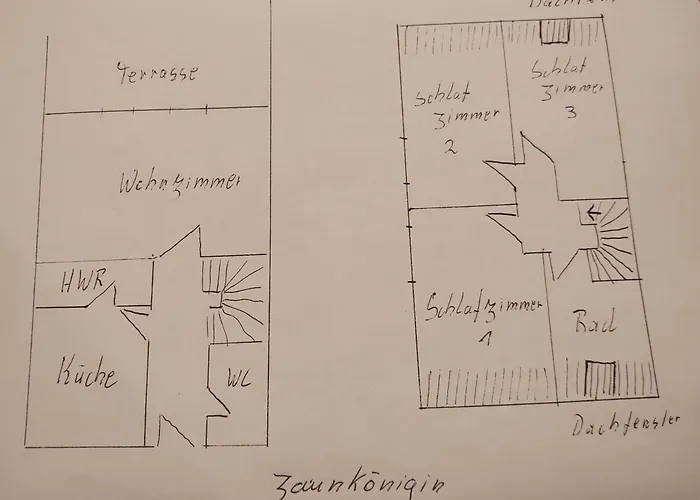 Terrasse
Wohnzimmer
HWR
Küche
WC
Schlaf
zimmer
2
Schlaf
zimmer
3
Schlafzimmer
1
Bad
Dachfenster
Zaunkönigin